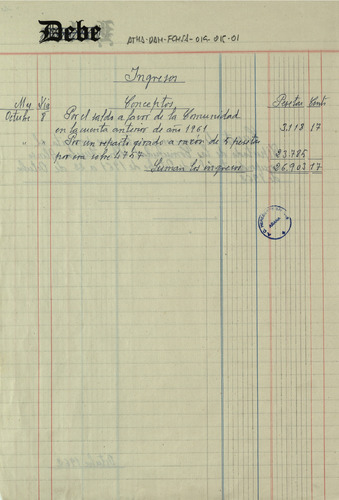 Debe
Ingresos
Mes Día Conceptos Pesetas Cents
Octubre 8 Por el saldo a favor de la Comunidad
en la cuenta anterior de año 1961 3.118 17
" Por un reparto girado a razón de 5 pesetas
por ora sobre 4757 23.785
Suman los ingresos 26.903 17